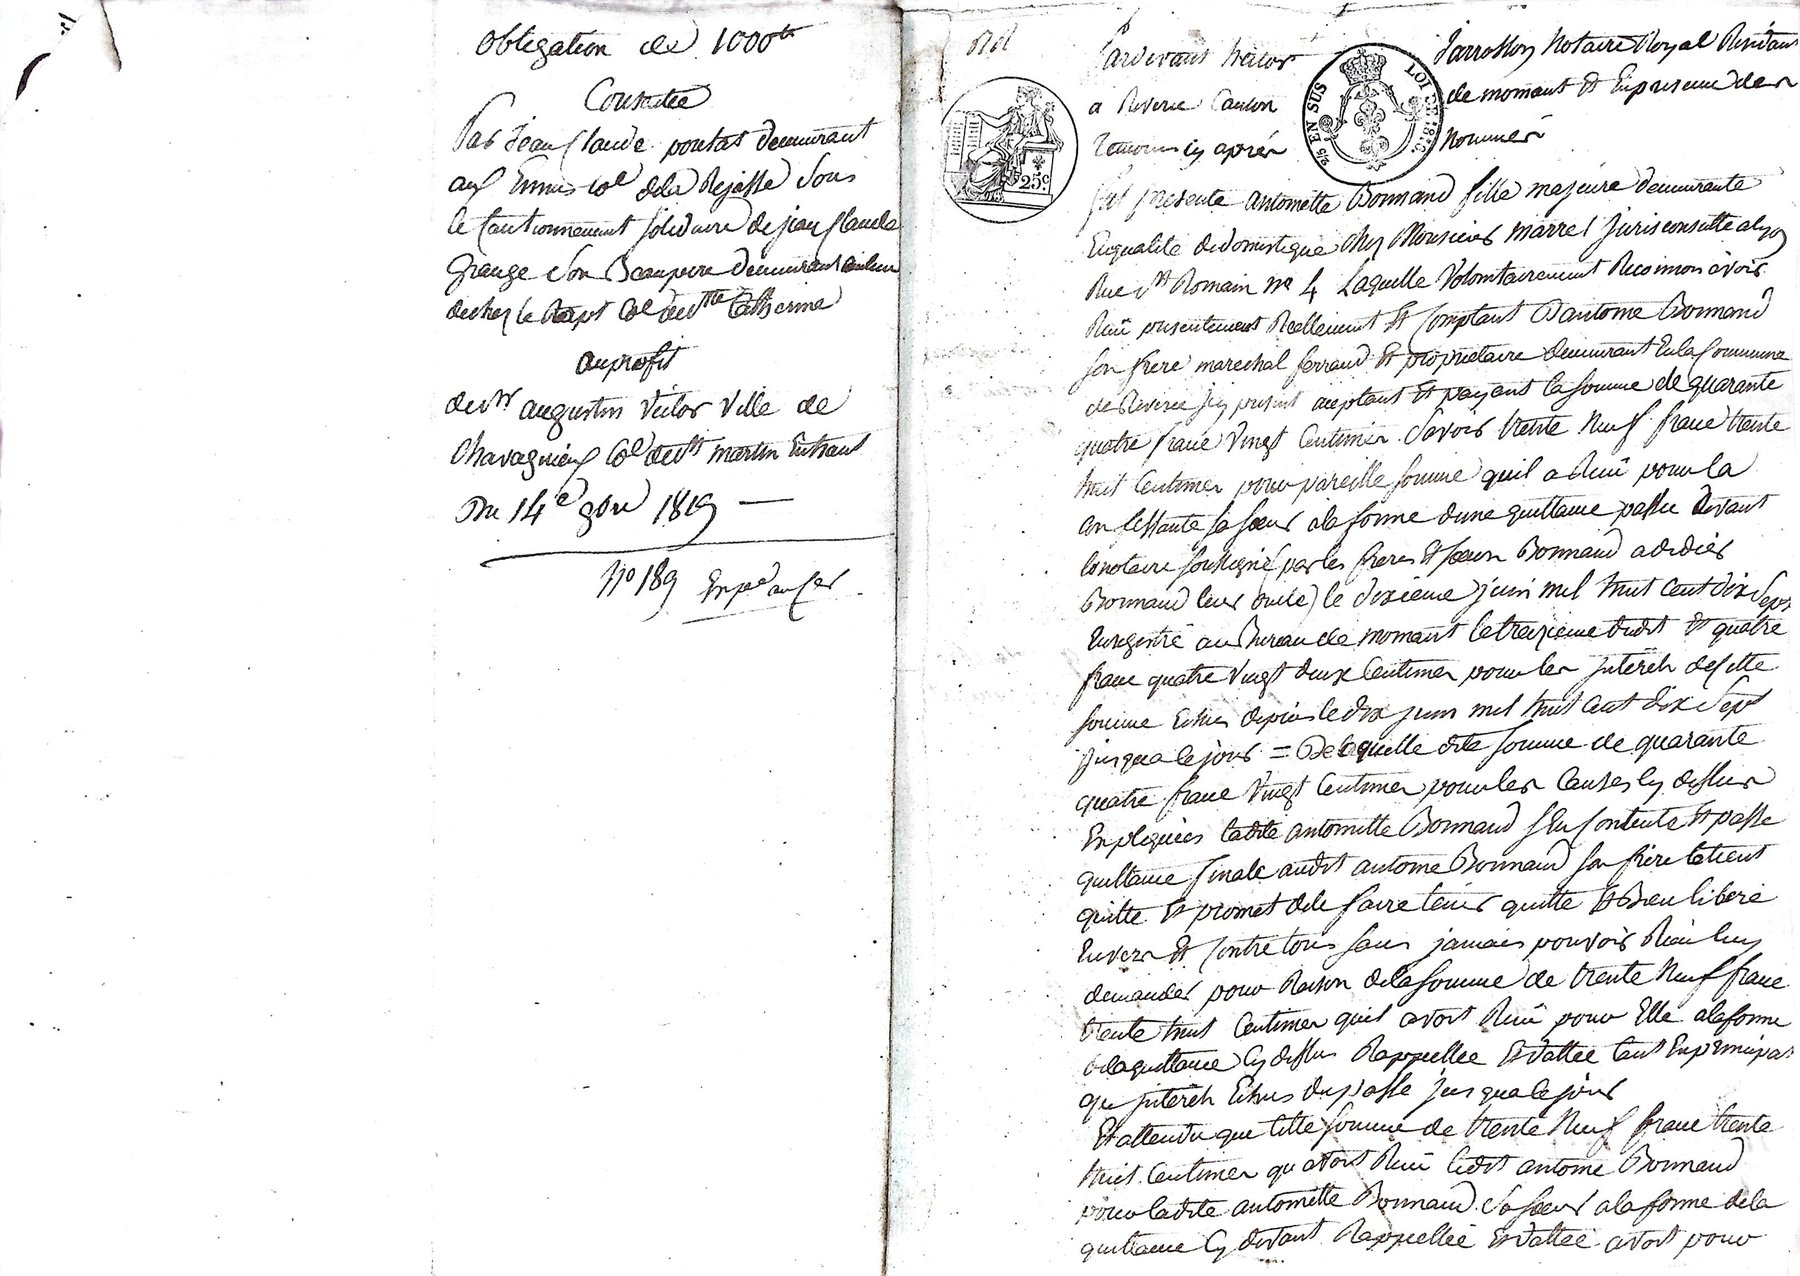 obligation de 1000tt
Consentie
Par Jean Claude pontat demeurant
aux Ennis col de la Rejasse Sous
le Cautionnement solidaire de jean Claude
Grange Son Beaupere demeurant au lieu
de chez le Rapt Col de Ste Catherine
au profit
de Sr augustin Victor Ville de
Chavagnieux Col de St martin En haut
Du 14e 9bre 1819
No 189 Exp

Pardevant hector Jarrosson Notaire Royal Residant
a Riverie Canton de mornant Et En presence des
Temoins cy aprés Nommés
LOI DE 1816
EN SUS
25c
fut presente antoinette Bonnand fille majeure demeurante
En qualite de domestique chez Monsieur marrel jurisconsulte a lyon
Rue St Romain no 4 Laquelle Volontairement Reconnoi avoir
Reçu presentement Reellement Et Comptant D'antoine Bonnand
son frere marechal ferrand Et proprietaire demeurant En la Commune
de Riverie icy present aceptant Et payant la somme de quarante
quatre franc Vingt Centimes Savoir trente Neuf franc trente
huit Centimes pour pareille somme quil a Reçu pour la
Confessante sa sœur a la forme d'une quittance passée devant
le notaire soussigné (par les freres Et sœurs Bonnand a didier
Bonnand leur oncle) le dixieme juin mil huit Cent dix Sept
Enregistré au Bureau de mornant le treizieme dudit Et quatre
franc quatre Vingt deux Centimes pour les jntérêts de Cette
somme Echus depuis le dix juin mil huit Cent dix Sept
jusqua Ce jour = De laquelle dite somme de quarante
quatre franc Vingt Centimes pour les Causes Cy dessus
Expliquées ladite antoinette Bonnand s'En Contente Et passe
quittance finale audit antoine Bonnand son frère le tient
quitte Et promet de le faire tenir quitte Et Bien liberé
Envers Et Contre tous sans jamais pouvoir Rien luy
demander pour Raison de la somme de trente Neuf franc
trente huit Centimes quil avoit Reçu pour Elle a la forme
de la quittance Cy dessus Rappellée Et dattée tant En principal
qu'jntérêts Echus du passé jusqua Ce jour
Et attendu que Cette somme de trente Neuf franc trente
huit Centimes qu avoit Reçu ledit antoine Bonnand
pour ladite antoinette Bonnand Sa sœur a la forme de la
quittance Cy devant Rappellée Et dattée avoit pour